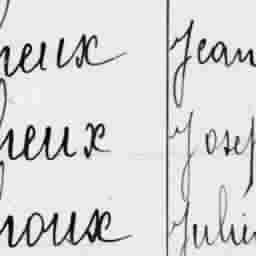 heux Jean
heux Josep
houx Julie